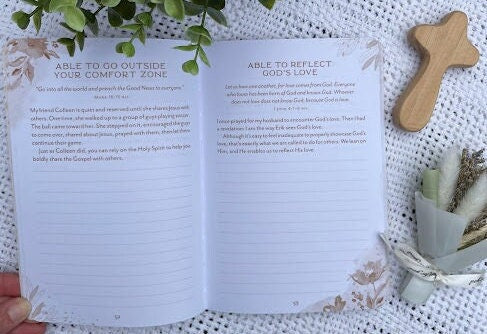 ABLE TO GO OUTSIDE
YOUR COMFORT ZONE
"Go into all the world and preach the Good News to everyone."
MARK 16:15 NLT
My friend Colleen is quiet and reserved until she shares Jesus with
others. One time, she walked up to a group of guys playing soccer.
The ball came toward her. She stepped on it, encouraged the guys
to come over, shared about Jesus, prayed with them, then let them
continue their game.
Just as Colleen did, you can rely on the Holy Spirit to help you
boldly share the Gospel with others.
52
ABLE TO REFLECT
GOD'S LOVE
Let us love one another, for love comes from God. Everyone
who loves has been born of God and knows God. Whoever
does not love does not know God, because God is love.
1 JOHN 4:7-8 NIV
I once prayed for my husband to encounter God's love. Then I had
a revelation: I am the way Erik sees God's love.
Although it's easy to feel inadequate to properly showcase God's
love, that's exactly what we are called to do for others. We lean on
Him, and He enables us to reflect His love.
53